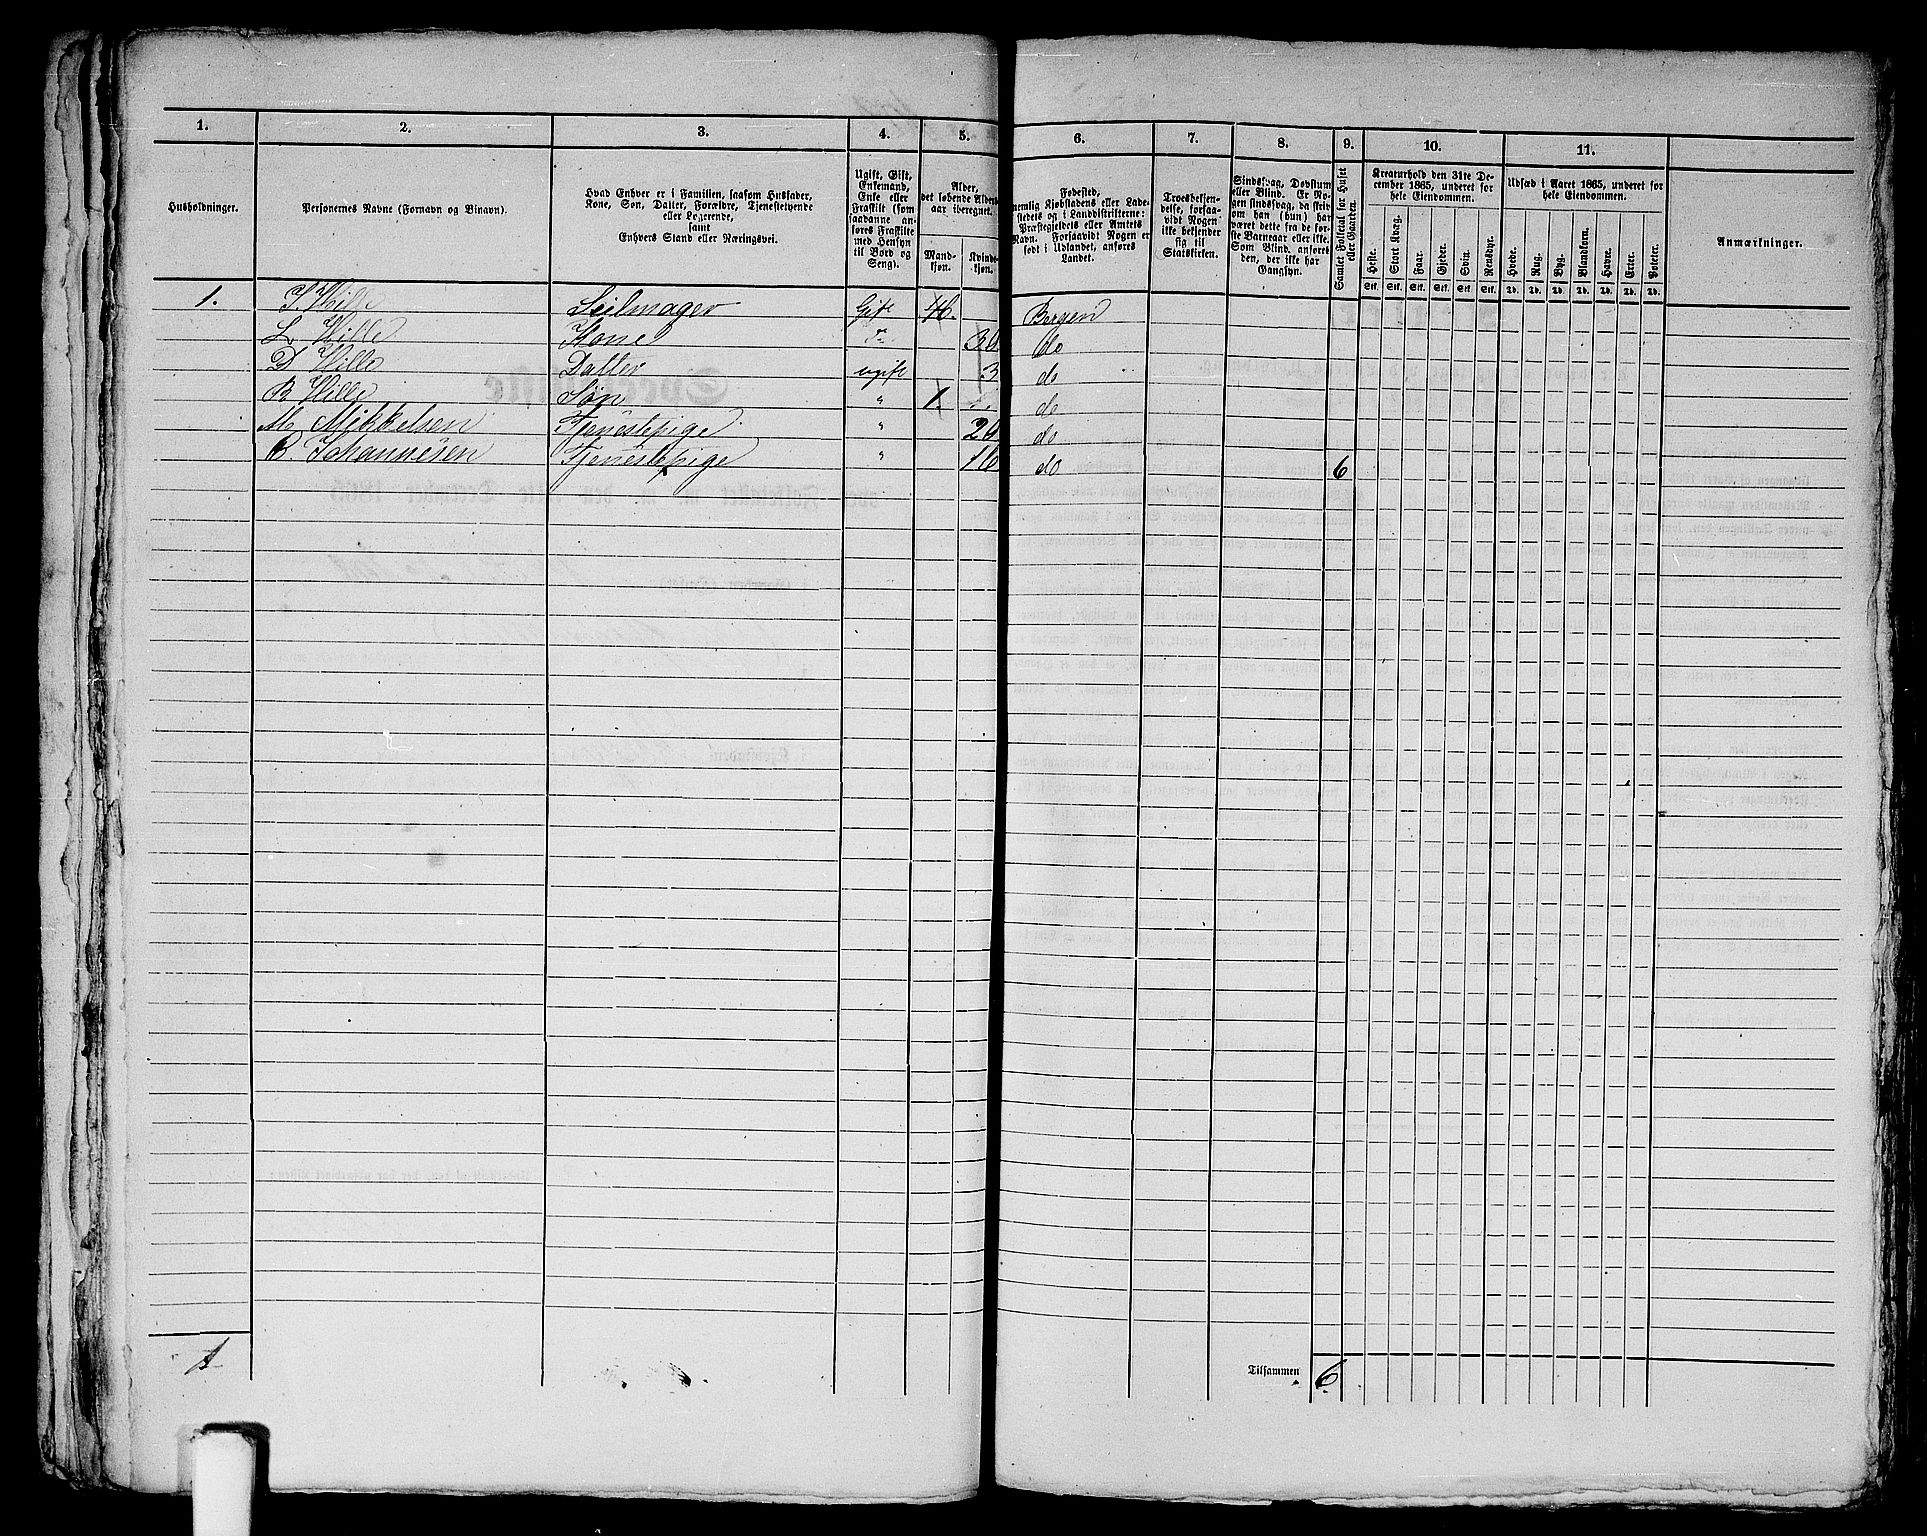 1. 2. 3. 4. 5. 6. 7. 8. 9. 10. 11.
Husholdninger.
Personernes Navne (Fornavn og Binavn).
Hvad Enhver er i Familien, saasom Husfader,
Kone, Søn, Datter, Forældre, Tjenestetyende
eller Logerende,
samt
Enhvers Stand eller Næringsvei.
Ugift, Gift,
Enkemand,
Enke eller
Fraskilt (som
saadanne an-
føres Fraskilte
med Hensyn
til Bord og
Seng).
Alder,
det løbende Alders-
aar iberegnet.
Mand-
kjøn.
Kvinde-
kjøn.
Fødested,
nemlig Kjøbstadens eller Lade-
stedets og i Landdistrikterne:
Præstegjeldets eller Amtets
Navn. Forsaavidt Nogen er
født i Udlandet, anføres
Landet.
Troesbekjen-
delse, forsaa-
vidt Nogen
ikke bekjender
sig til
Statskirken.
Sindssvag, Døvstum
eller Blind. Er No-
gen sindssvag, da skrives
om han (hun) har
været dette fra de før-
ste Barneaar eller ikke.
Som Blind anføres
den, der ikke har
Gangsyn.
Samlet Folketal for Huset
eller Gaarden.
Kreaturhold den 31te De-
cember 1865, underet for
hele Eiendommen.
Heste. Stort Kvæg. Faar. Gjeder. Sviin. Rensdyr.
Stk. Stk. Stk. Stk. Stk. Stk.
Udsæd i Aaret 1865, underet for
hele Eiendommen.
Hvede. Rug. Byg. Blandkorn. Havre. Erter. Poteter.
Td. Td. Td. Td. Td. Td. Td.
Anmærkninger.
1. Wille Seilmager Gift 46. Bergen
L Wille Kone 36 do
D Wille Datter ugift 3 do
B Wille Søn " 1. do
M. Mikkelsen Tjenestepige " 26 do
Johannesen Tjenestepige " 16 do 6
1
Tilsammen 6